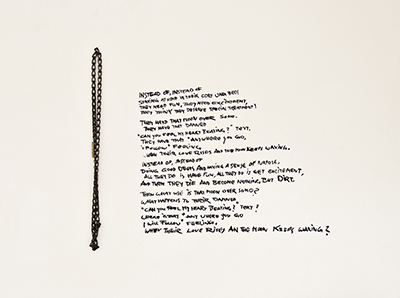 INSTEAD OF, INSTEAD OF
STAYING AT HOME IN THEIR COZY WARM BEDS
THEY WANT FUN, THEY NEED EXCITEMENT,
THEY THINK THEY DESERVE SPECIAL TREATMENT!
THEY NEED THAT MOON OVER SOHO.
THEY HAVE THAT DAMNED
"CAN YOU FEEL MY HEART BEATING?" TEXT,
THEY HAVE THAT "ANYWHERE YOU GO,
I FOLLOW" FEELING,
WHEN THEIR LOVE RISES AND THE MOON KEEPS WAXING.
INSTEAD OF, INSTEAD OF
DOING GOOD DEEDS AND MAKING A SENSE OF
ALL THEY DO IS HAVE FUN, ALL THEY DO IS GET EXCITEMENT,
AND THEN THEY DIE AND BECOME NOTHING BUT DIRT.
THEN WHAT USE IS THAT MOON OVER SOHO?
WHAT HAPPENS TO THEIR DAMNED,
"CAN YOU FEEL MY HEART BEATING?" TEXT?
WHERE IS THAT "ANY WHERE YOU GO
I WILL FOLLOW" FEELING,
WHEN THEIR LOVE RISES AN THE MOON KEEPS WAXING?